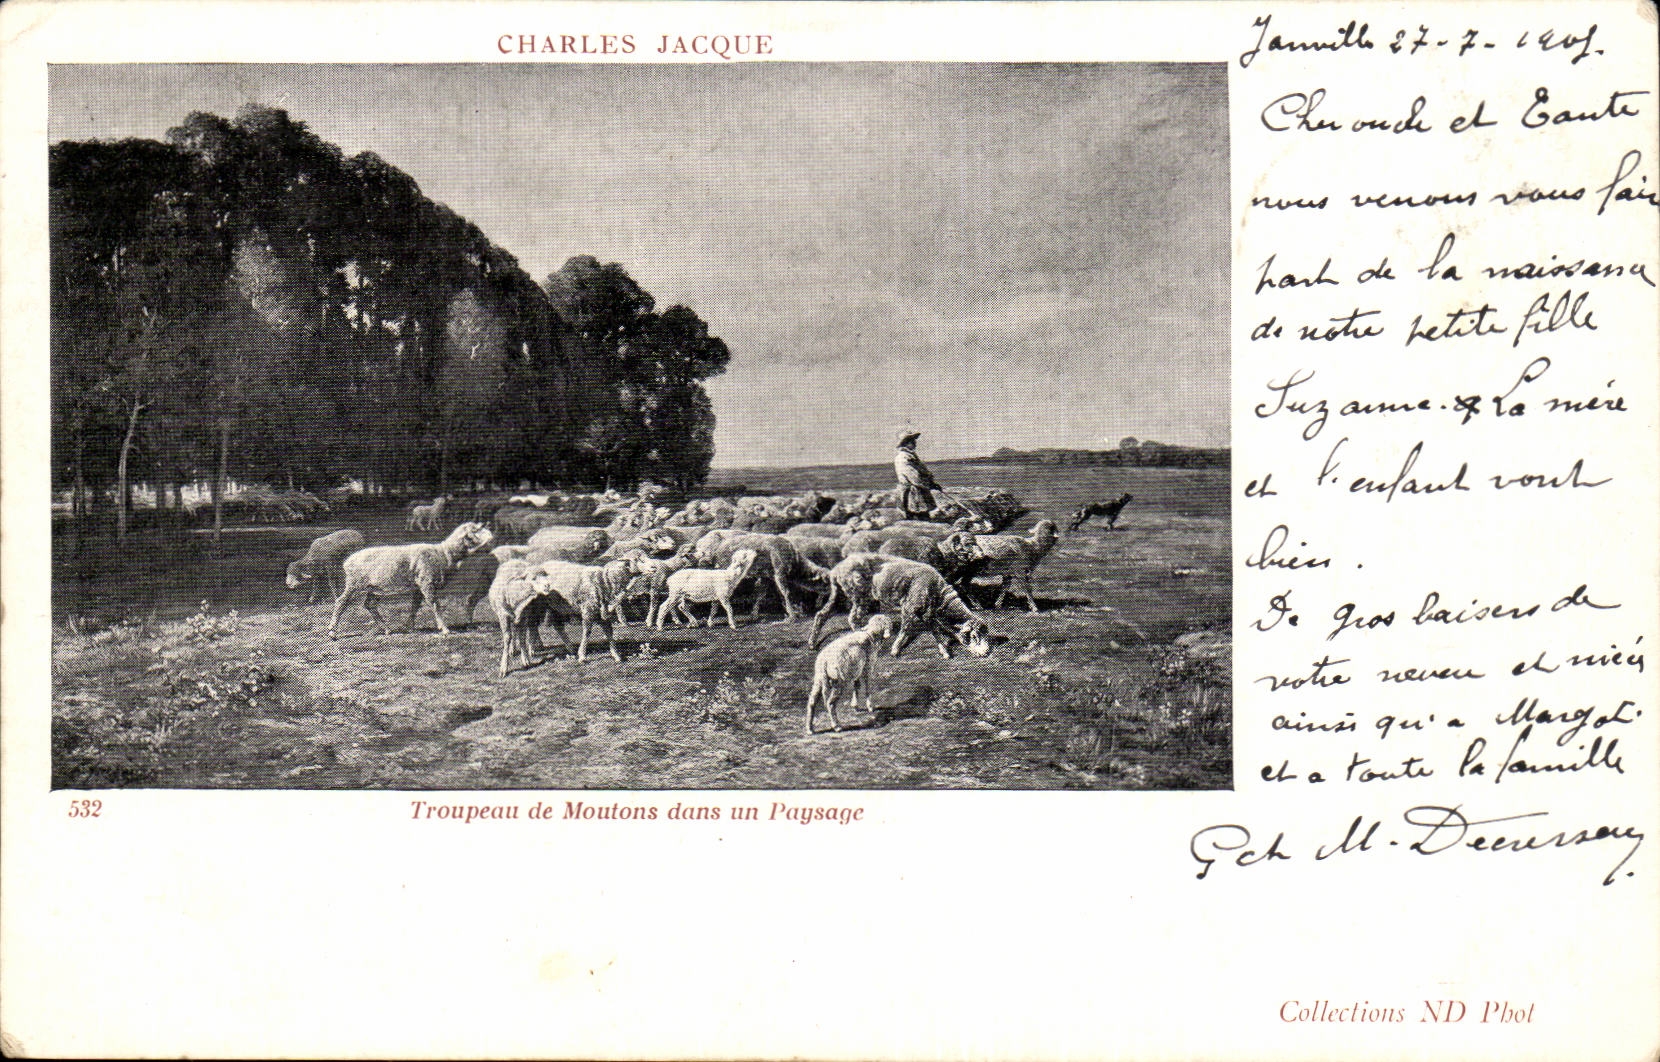 CHARLES JACQUE
Janville 27-7-1905.
Cher oncle et Tante
nous venons vous fair
part de la naissance
de notre petite fille
Suzanne. La mère
et l'enfant vont
bien.
De gros baisers de
votre neveu et nièce
ainsi qu'a Margot
et a toute la famille
G et M. Decressay
532
Troupeau de Moutons dans un Paysage
Collections ND Phot